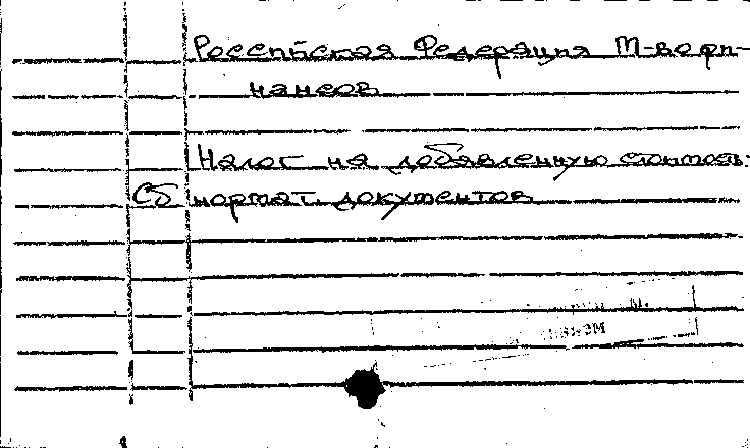 Российская Федерация М-во фи-
нансов
Налог на добавленную стоимость:
Сб нормат. документов